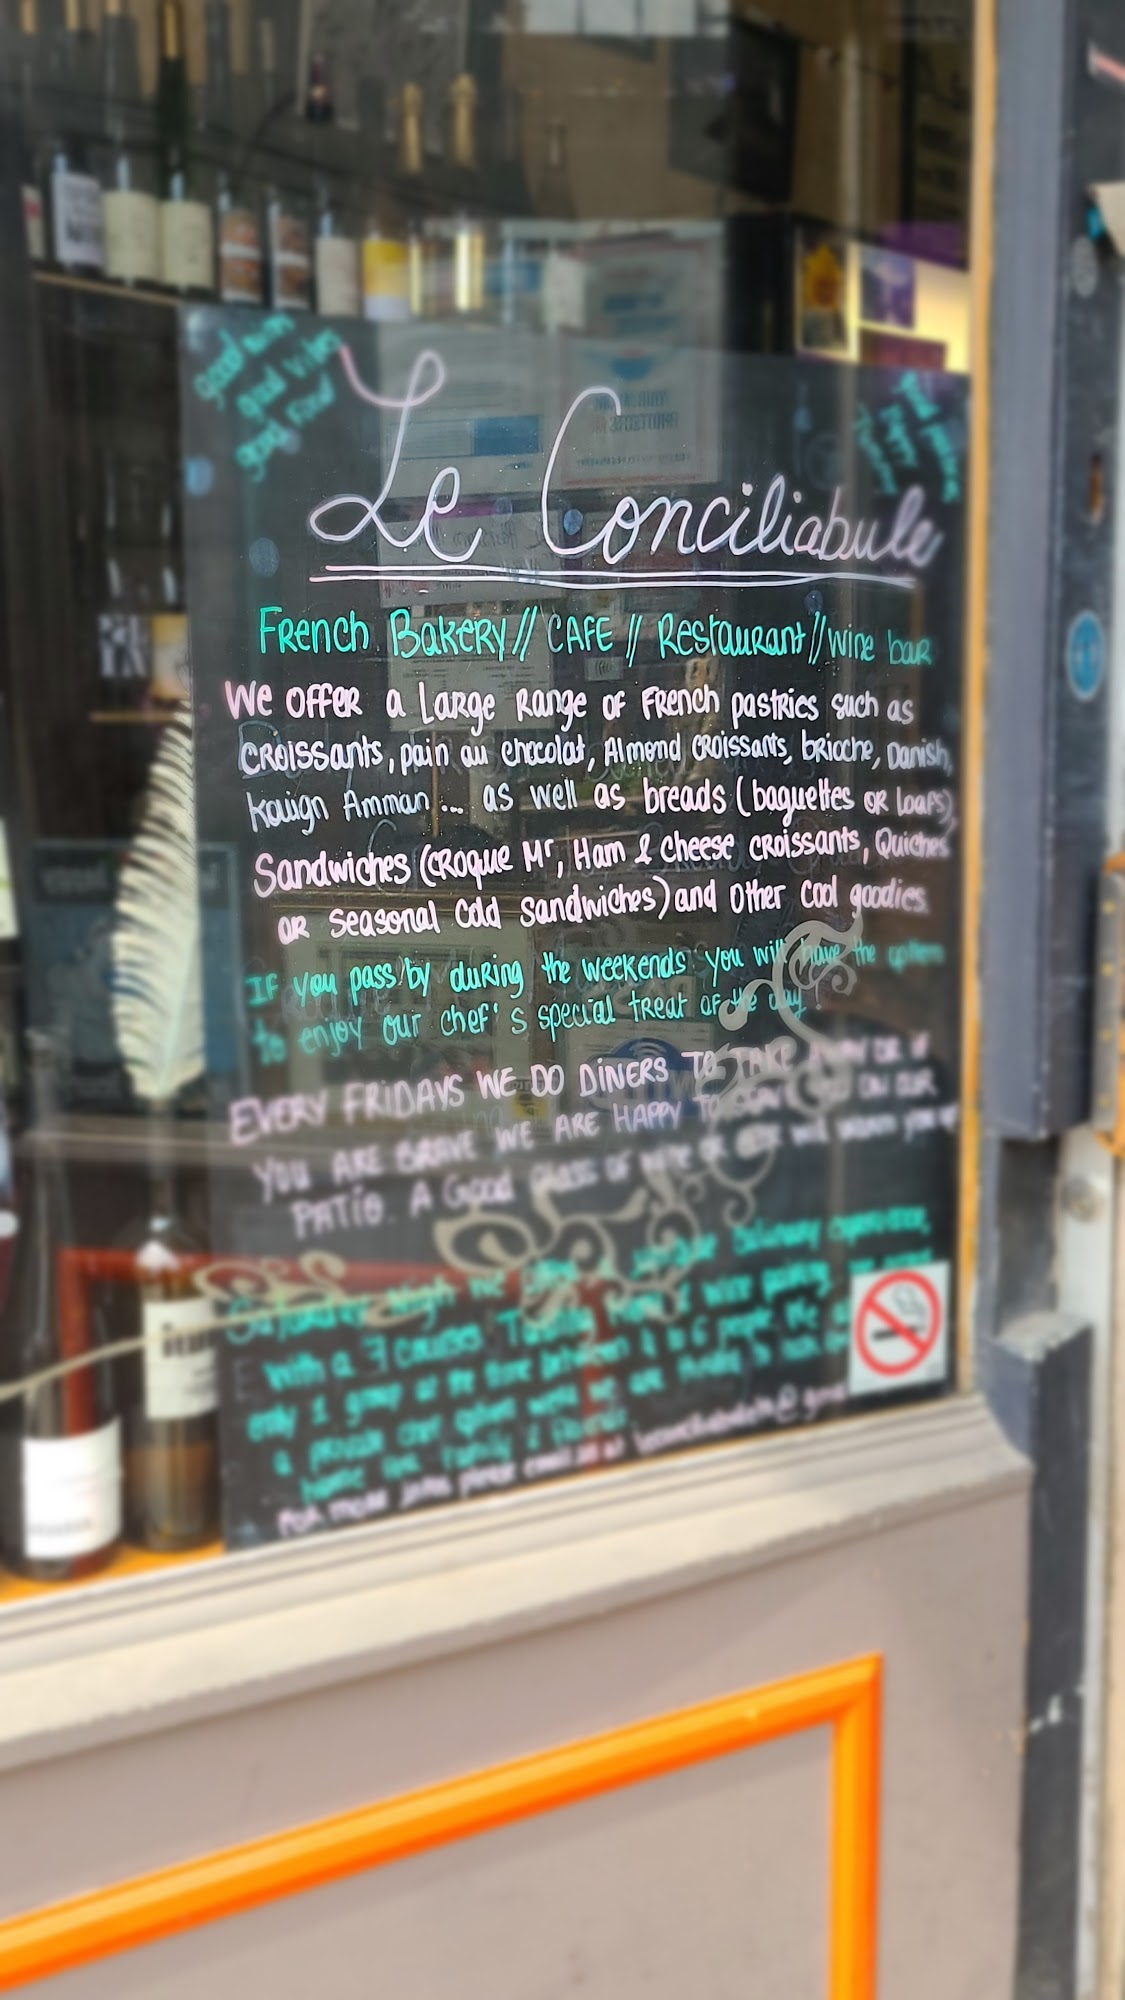 good wine
good vibes
good food
Le Conciliabule
FRench BakeRY // CAFE // RestauRant // wine baR
We OFFeR a LaRge Range OF FRench pastRies such as
CROissants, pain au chocolat, Almond CROissants, bRioche, Danish,
kouign Amman ... as well as breads (baguettes OR loafs),
Sandwiches (CROque Mr, Ham & cheese CROissants, Quiches
OR Seasonal Cold Sandwiches) and Other Cool goodies.
IF you pass by duRing the weekends you will have the option
to enjoy our chef's special treat of the day !
EVERY FRIDAYS WE DO DINERS TO TAKE AWAY OR IF
YOU ARE BRAVE WE ARE HAPPY TO SERVE YOU ON OUR
PATIO. A Good glass of wine OR will warm you up
Saturday nigh we a unique Culinary experience,
with a 7 courses Tasting Menu & wine pairing.
only 1 group at the time between 4 to 6 people. We
a private chef option were we are to cook
home for family & friends.
For more infos please email us at